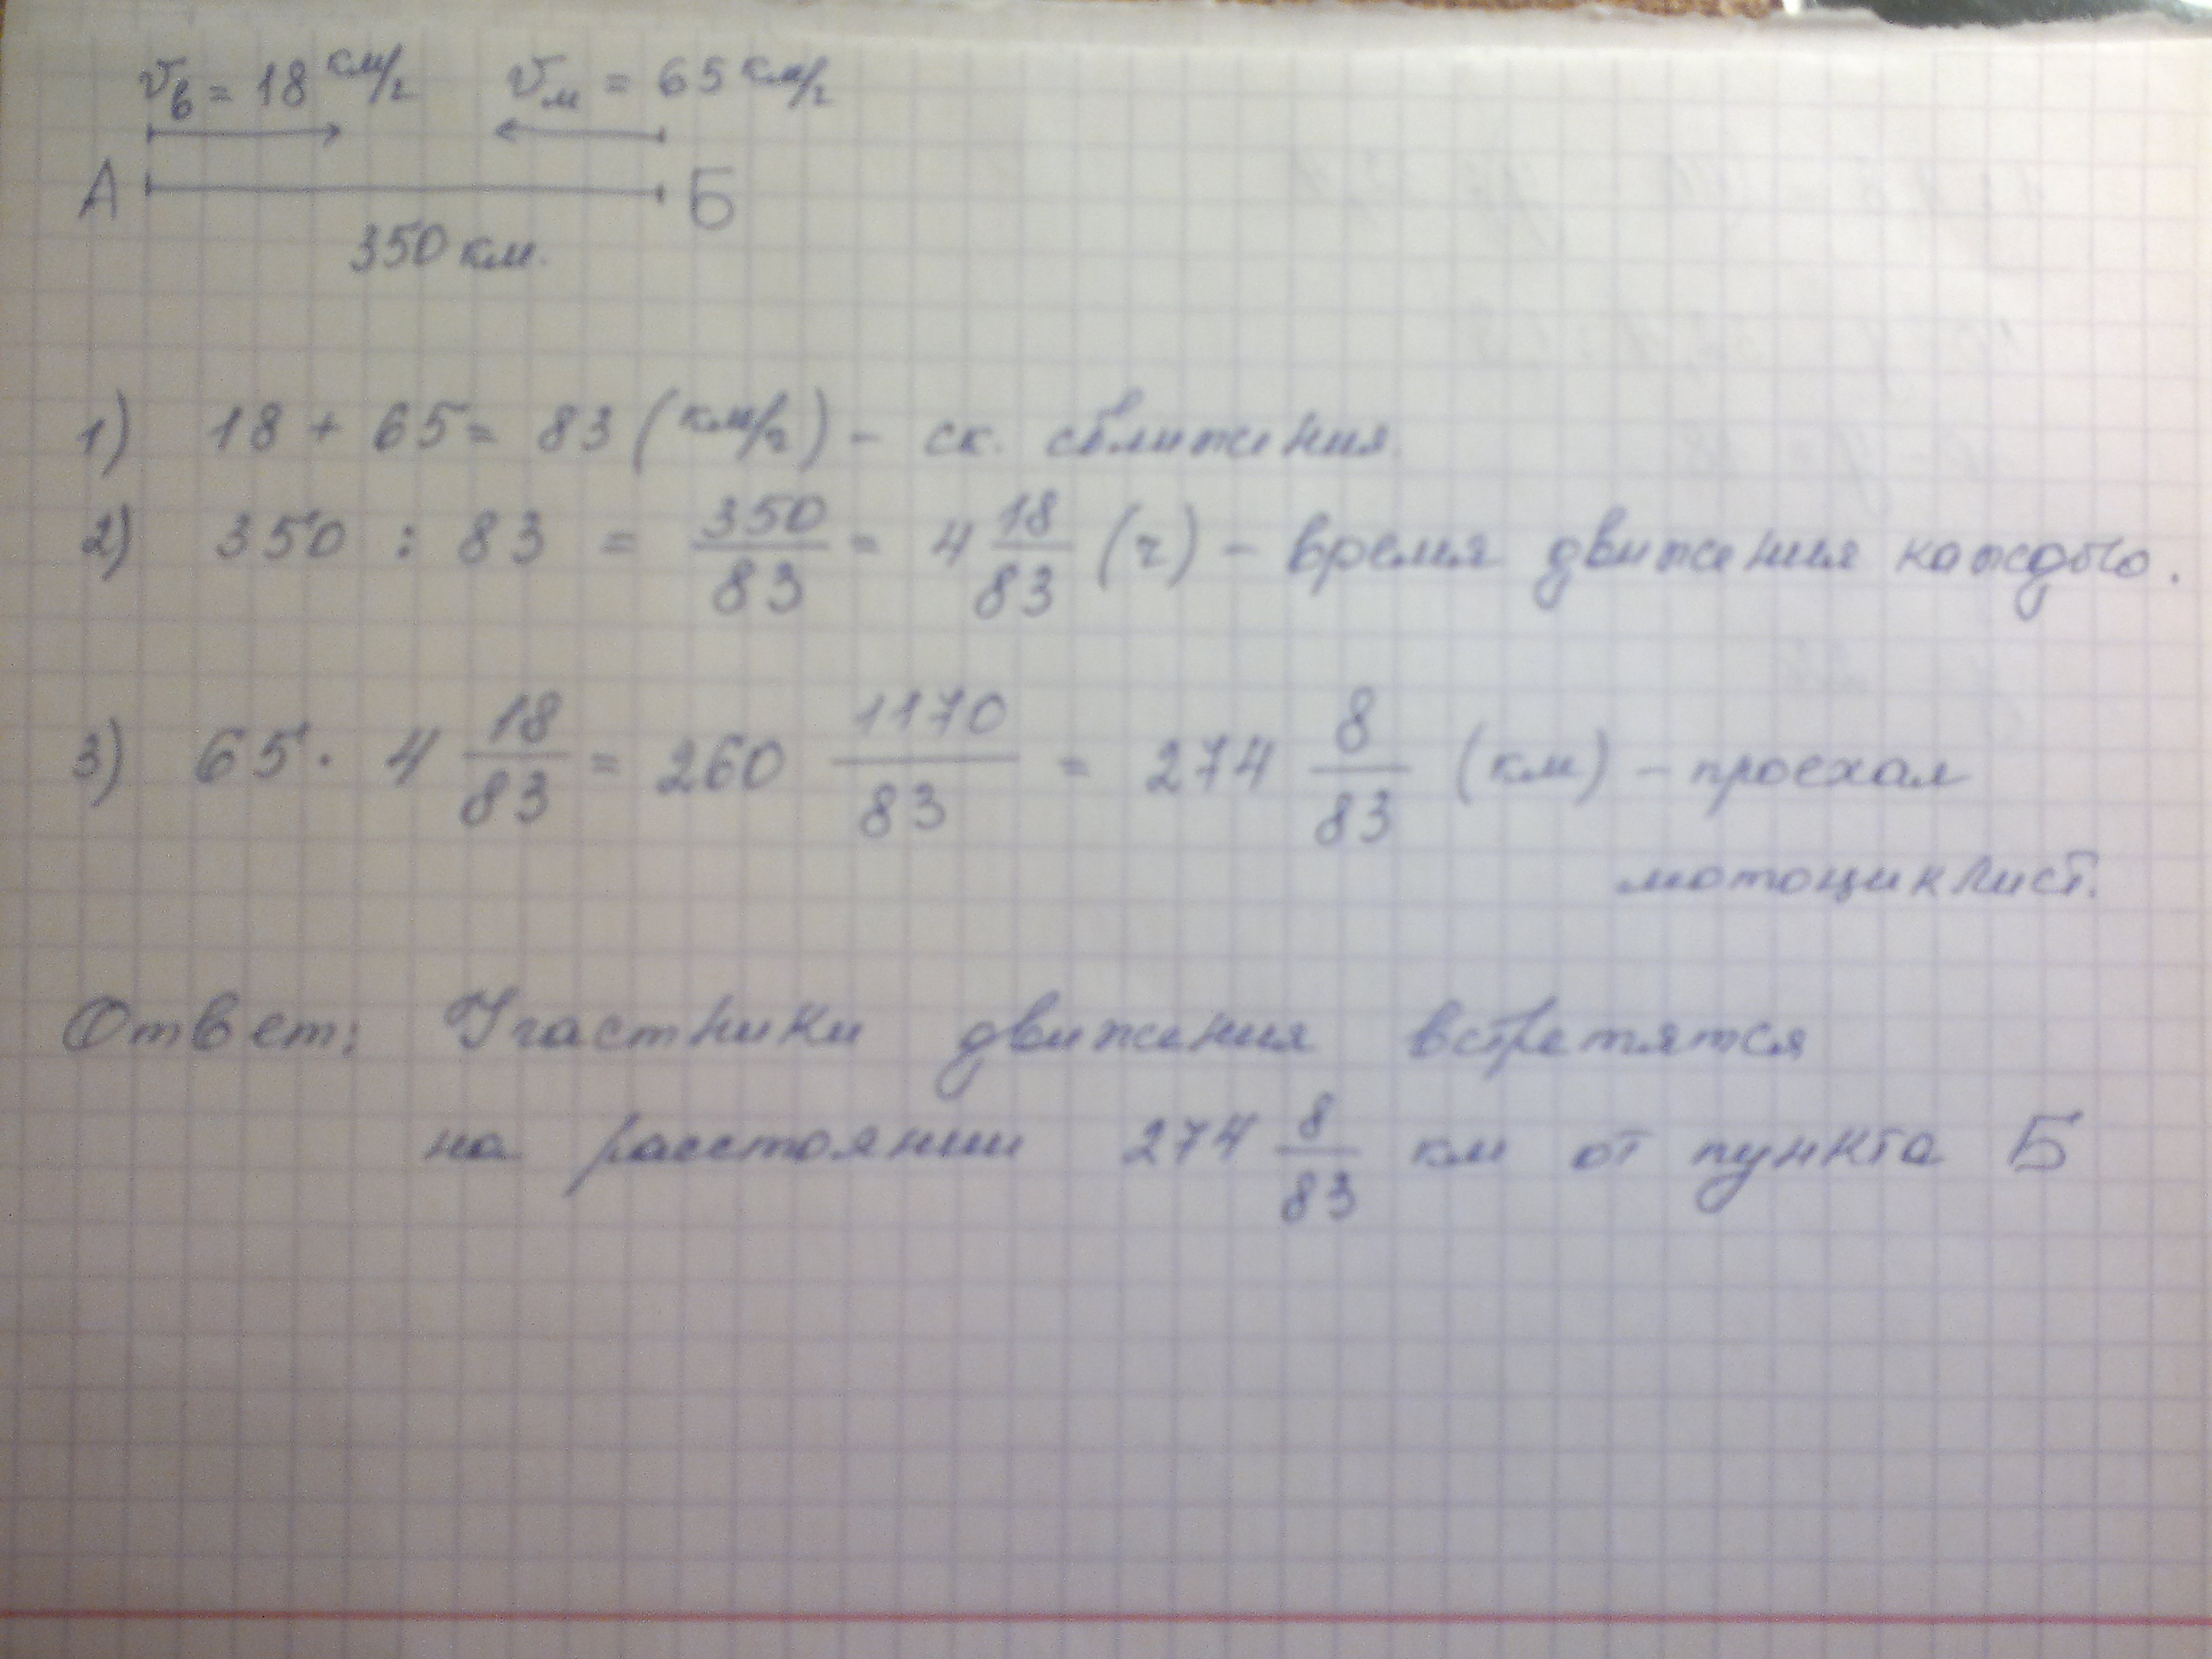 vв = 18 км/ч vм = 65 км/ч
А Б
350 км.
1) 18 + 65 = 83 (км/ч) - ск. сближения.
2) 350 : 83 = 350/83 = 4 18/83 (ч) - время движения каждого.
3) 65 · 4 18/83 = 260 1170/83 = 274 8/83 (км) - проехал
мотоциклист.
Ответ: Участники движения встретятся
на расстоянии 274 8/83 км от пункта Б